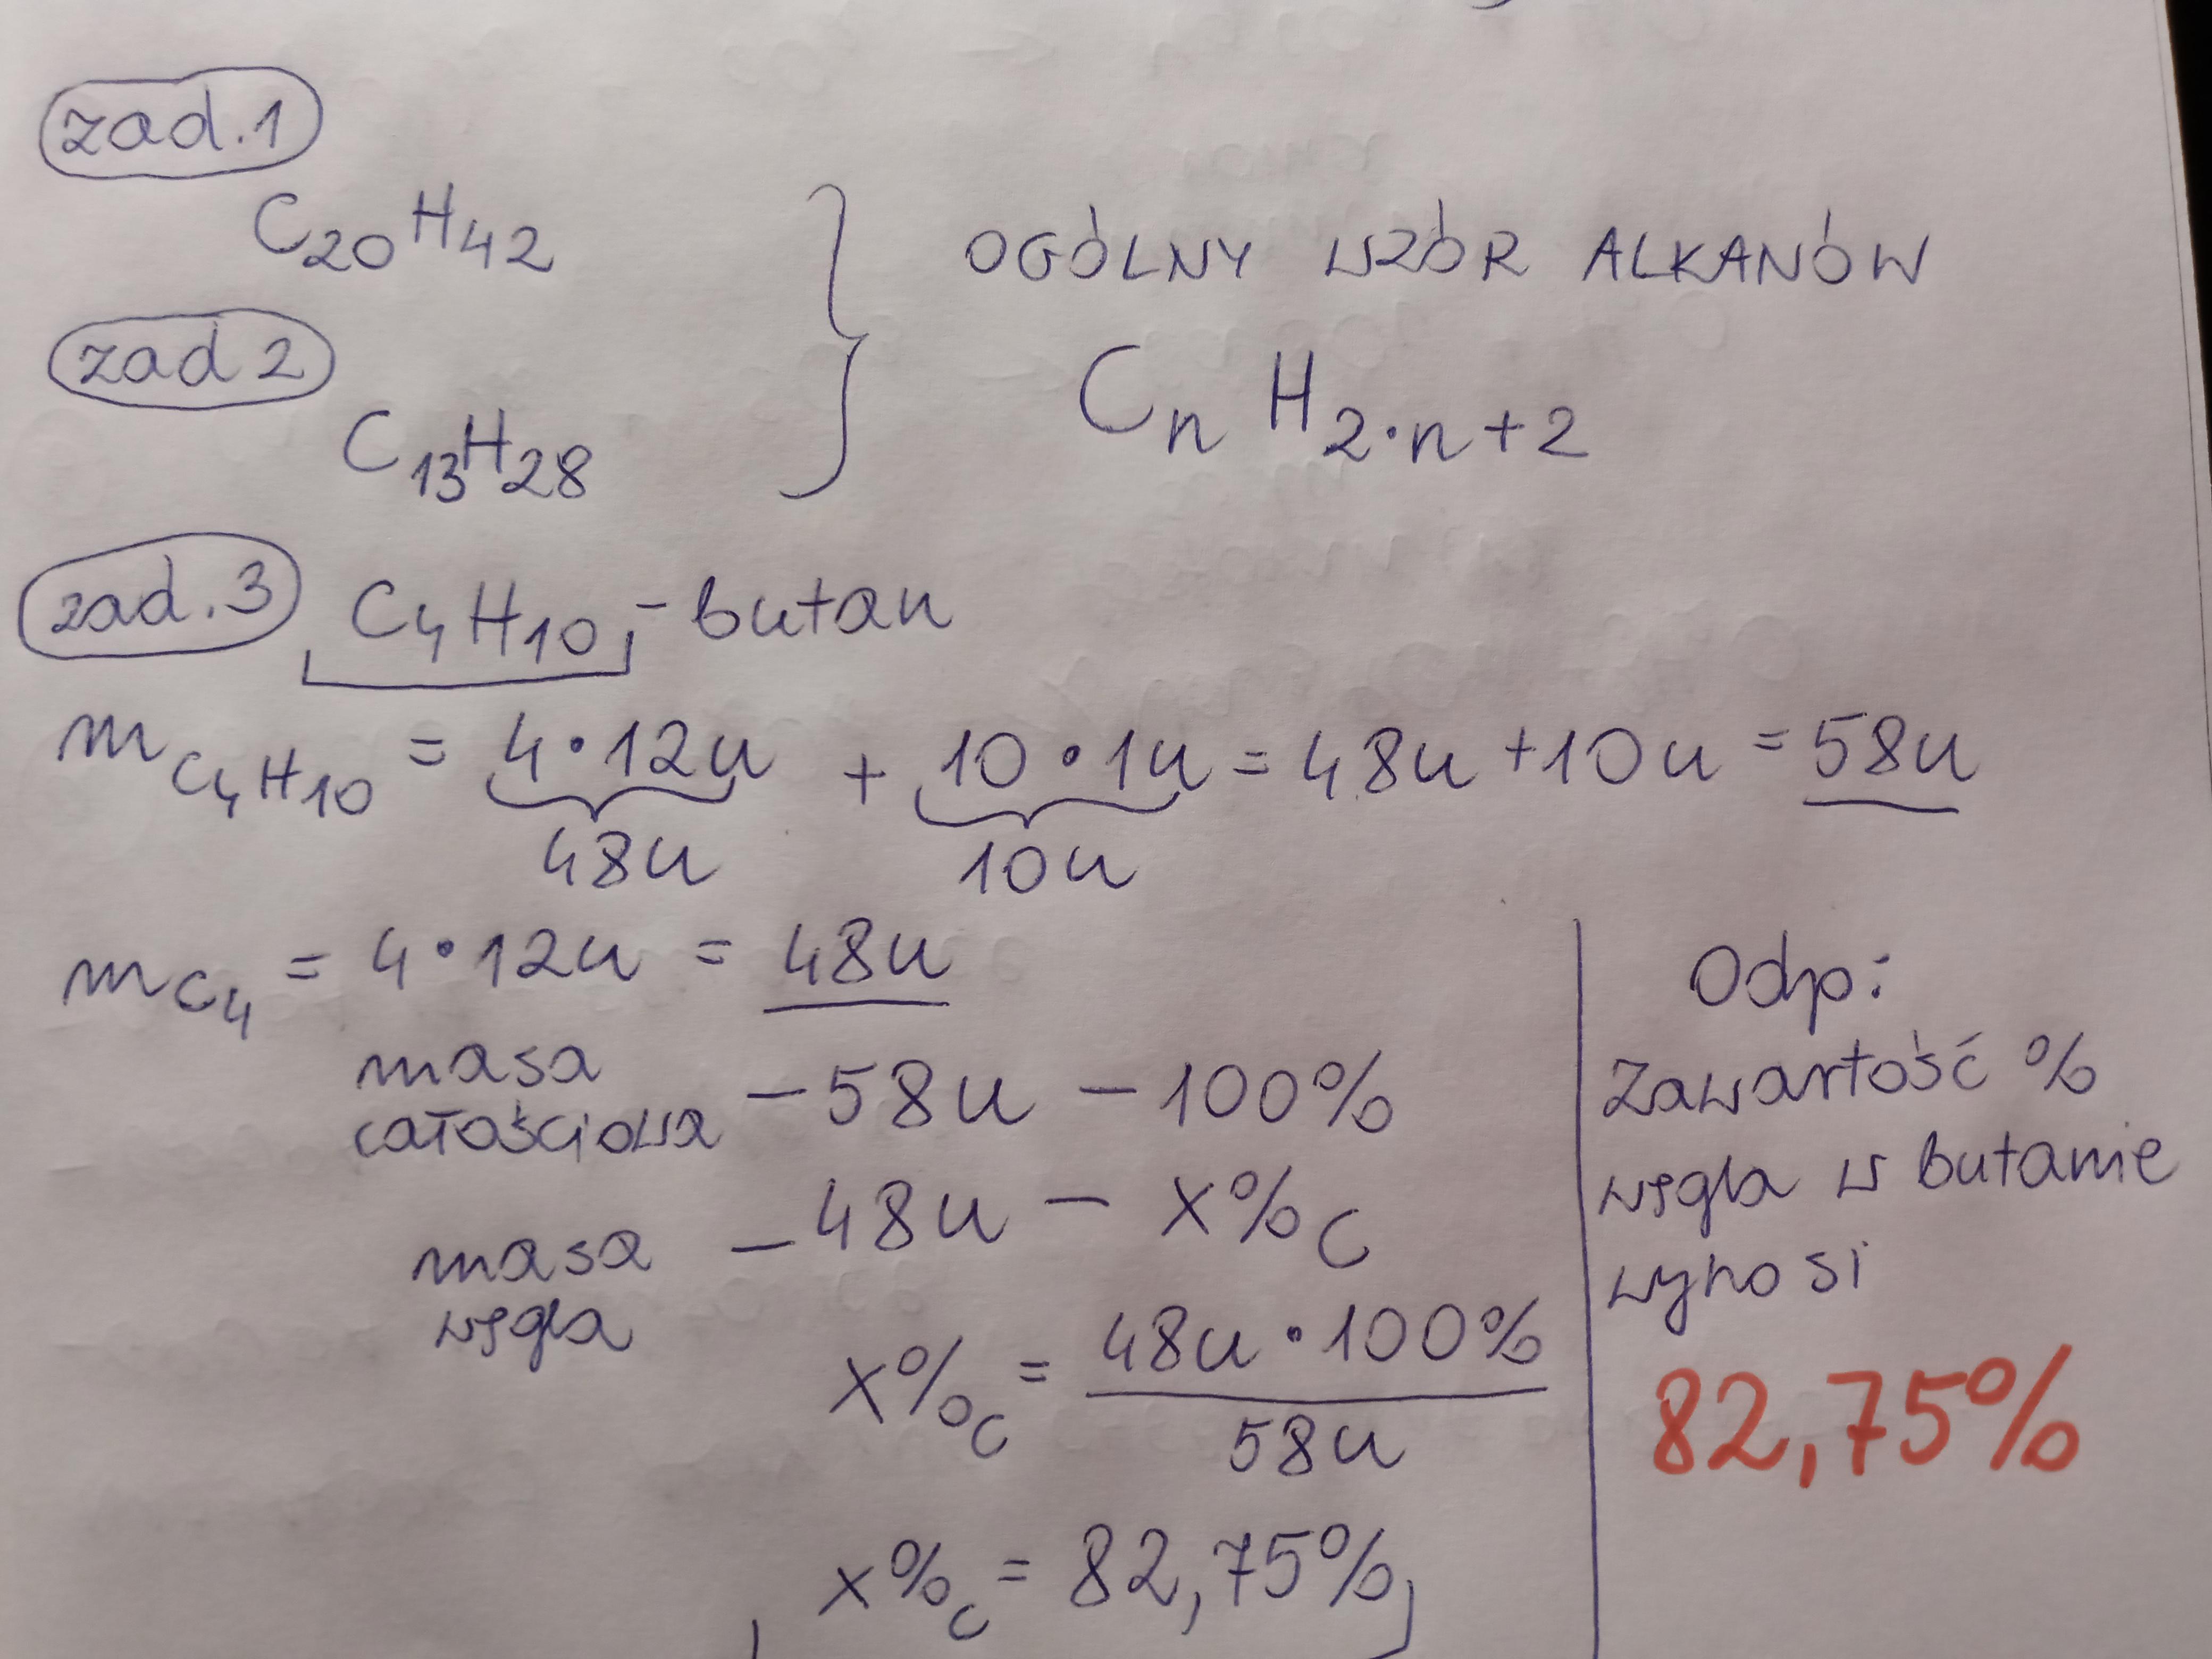 zad.1
C20H42
OGÓLNY WZÓR ALKANÓW
zad 2
CnH2·n+2
C13H28
zad.3 C4H10 - butan
mC4H10 = 4·12u + 10·1u = 48u + 10u = 58u
48u 10u
mC4 = 4·12u = 48u
masa całościowa - 58u - 100%
masa węgla - 48u - x%C
x%C = 48u·100%
58u
x%C = 82,75%
Odp:
Zawartość %
węgla w butanie
wynosi
82,75%